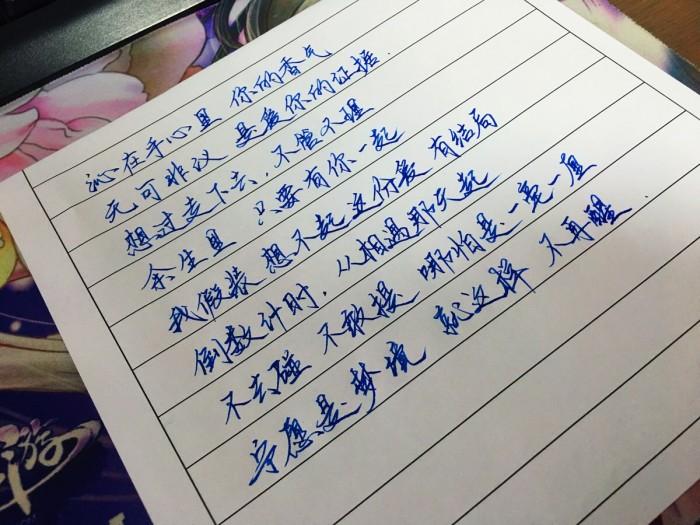 沁在手心里 你的香气
无可非议 是爱你的证据.
想过走下去,不管不理
余生里 只要有你一起
我假装 想不起这份爱 有结局
倒数计时,从相遇那天起
不去碰 不敢提 哪怕是一毫一厘
宁愿是梦境 就这样 不再醒.
游